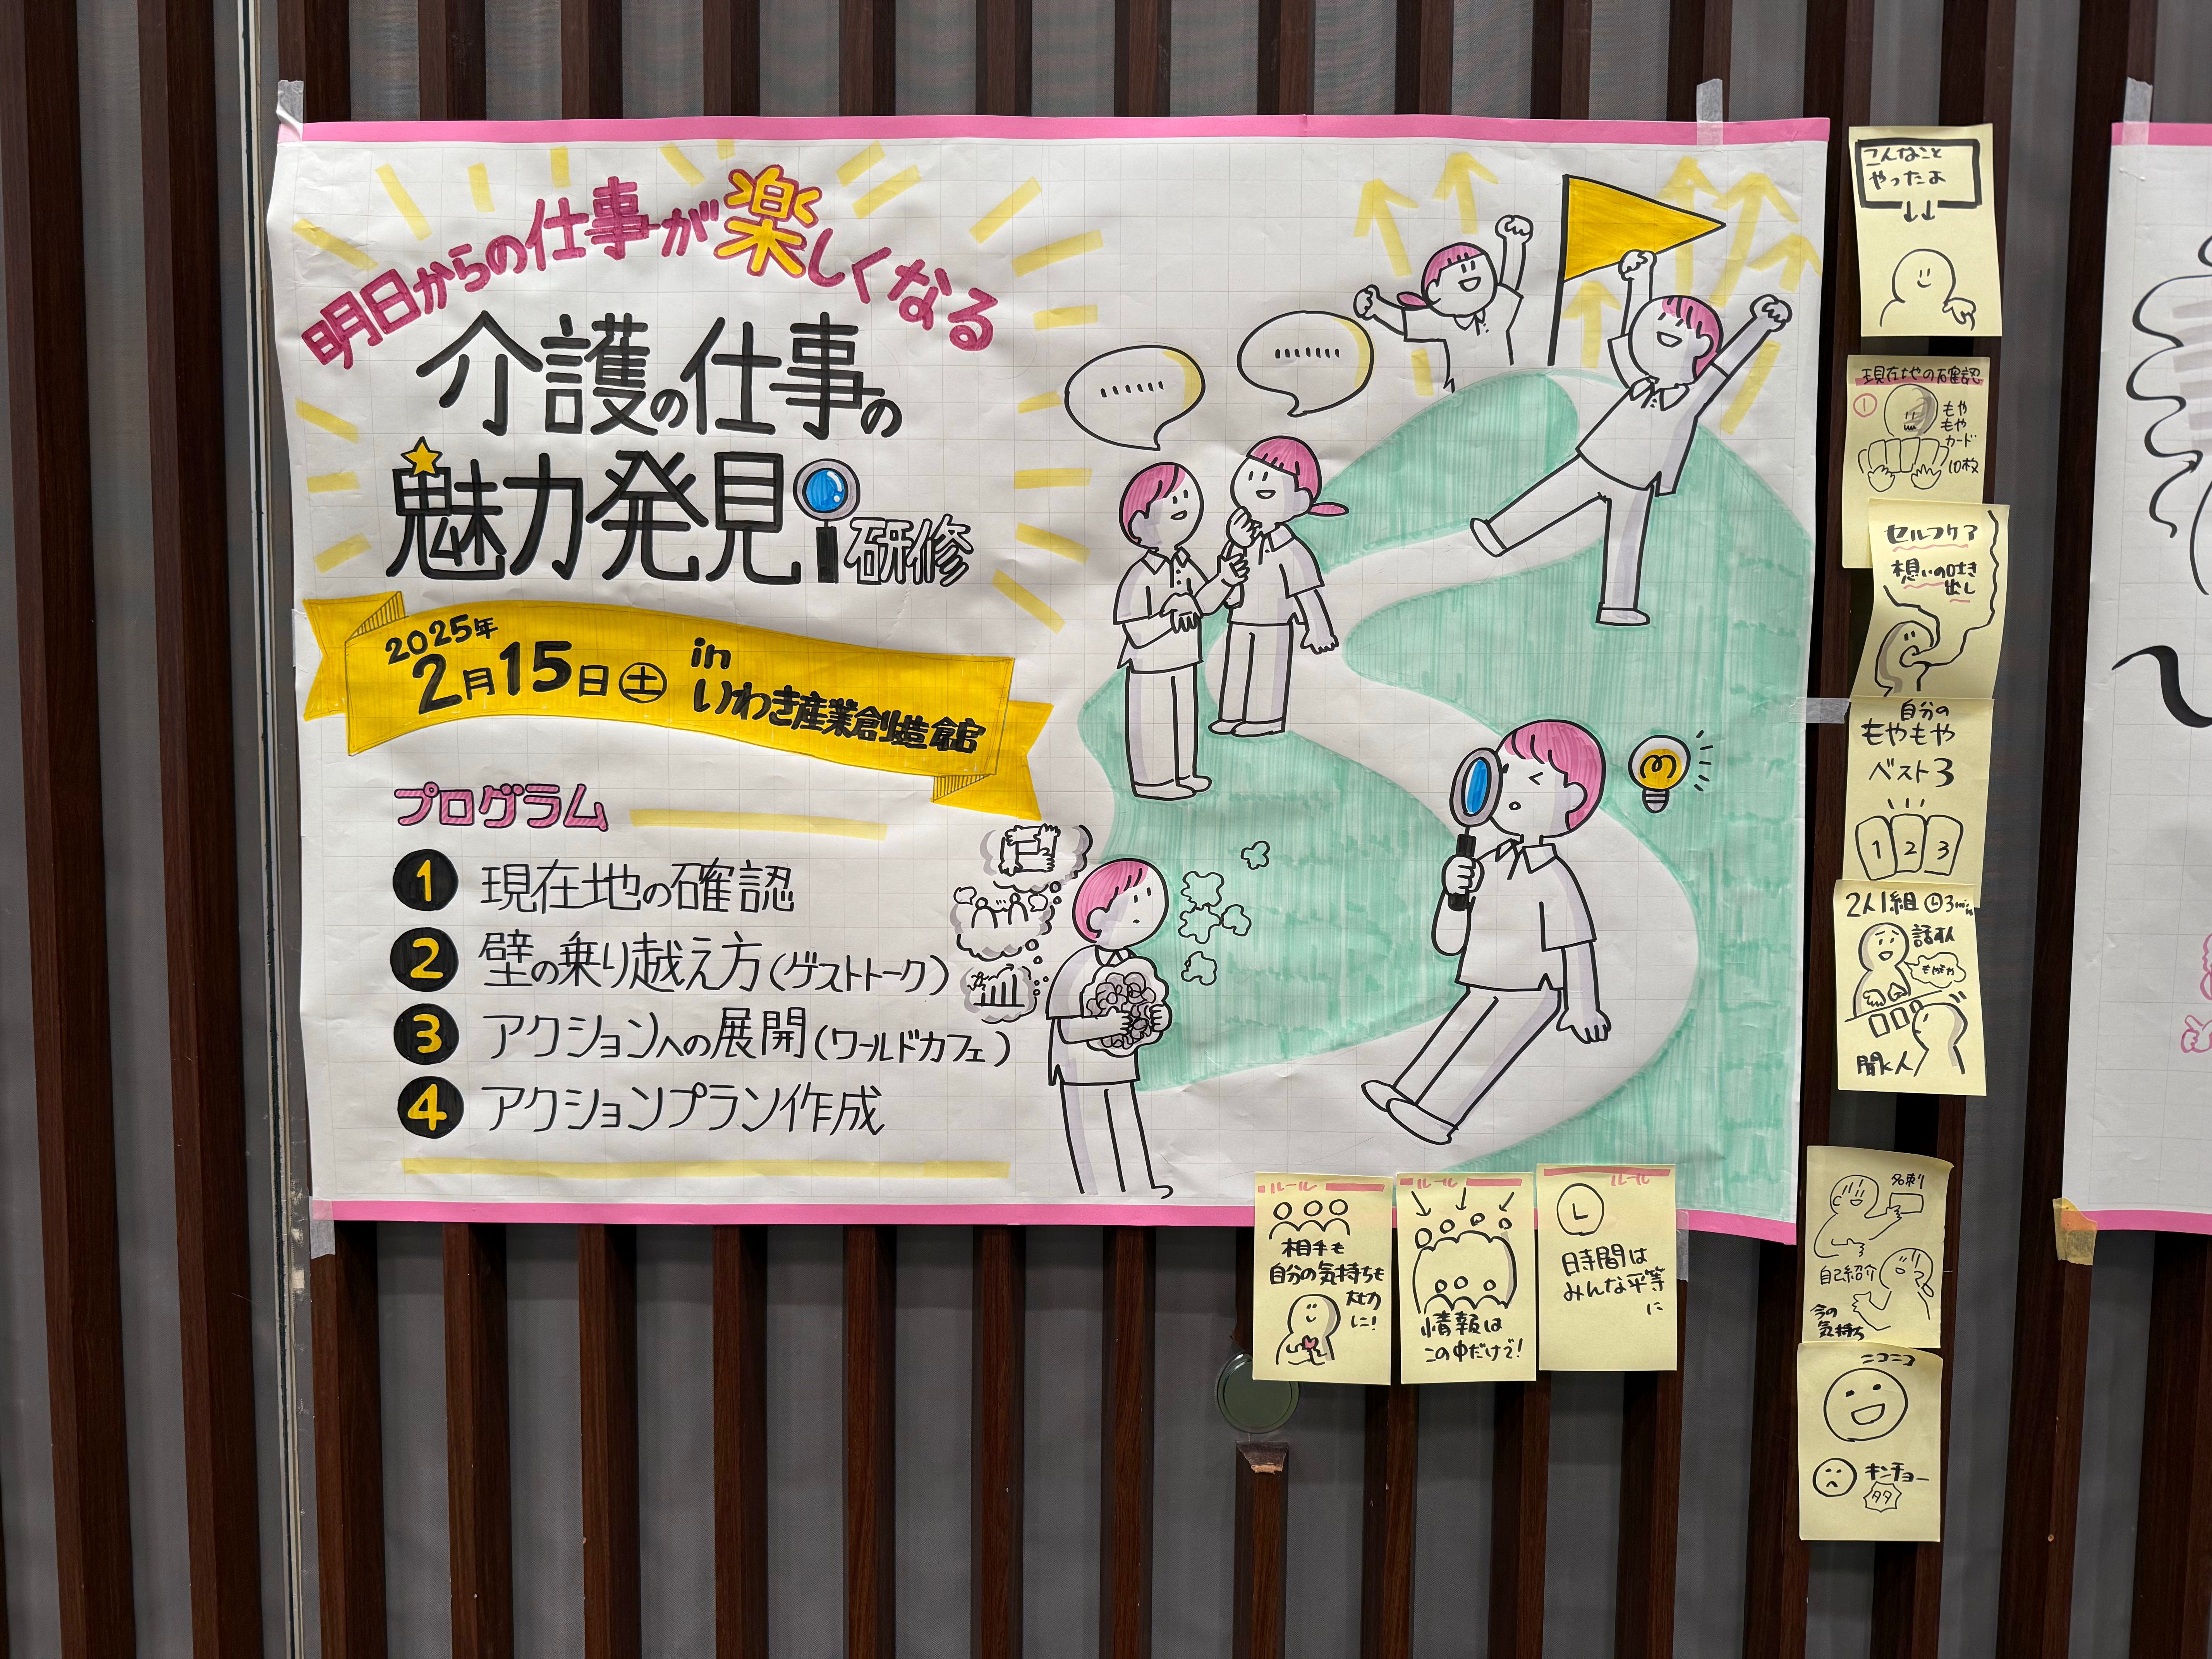 明日からの仕事が楽しくなる
介護の仕事の
魅力発見研修
2025年
2月15日土
in
いわき産業創造館
プログラム
1 現在地の確認
2 壁の乗り越え方(ゲストトーク)
3 アクションへの展開(ワールドカフェ)
4 アクションプラン作成
こんなこと
やったよ
現在地の確認
1
もや
もや
カード
10枚
セルフケア
想いの吐き
出し
自分の
もやもや
ベスト3
1 2 3
2人1組 3min
話す人
もやもや
聞く人
名刺
自己紹介
今の
気持ち
ニコニコ
キンチョー
タタ
ルール
相手も
自分の気持ちも
大切
に!
ルール
情報は
この中だけで!
ルール
時間は
みんな平等
に